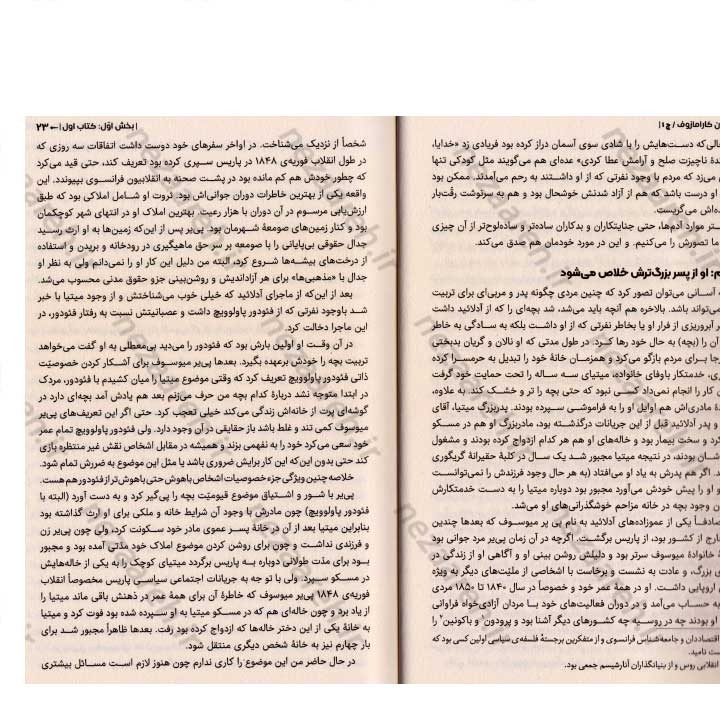 ن کارامازوف / ج ۱|
حالی‌که دست‌هایش را با شادی سوی آسمان دراز کرده بود فریادی زد «خدایا،
دهٔ ناچیزت صلح و آرامش عطا کردی» عده‌ای هم می‌گویند مثل کودکی تنها
می‌زد که مردم با وجود نفرتی که از او داشــتند به رحم می‌آمدند. ممکن بود
او درست باشد که هم از آزاد شدنش خوشحال بود و هم به سرنوشت رقّت‌بار
ه‌اش می‌گریست.
تــر موارد آدم‌ها، حتی جنایتکاران و بدکاران ساده‌تر و ساده‌لوح‌تر از آن چیزی
ما تصورش را می‌کنیم. و این در مورد خودمان هم صدق می‌کند.
م: او از پسر بزرگ‌ترش خلاص می‌شود
ه آسانی می‌توان تصور کرد که چنین مردی چگونه پدر و مربی‌ای برای تربیت
می‌تواند باشد. بالاخره هم آنچه باید می‌شد، شد بچه‌ای را که از آدلائید داشت
آبرویزی از فرار او یا بخاطر نفرتی که از او داشت بلکه به سادگی به خاطر
آن را (بچه) به حال خود رها کرد. در طول مدتی که او نالان و گریان بدبختی
رجا برای مردم بازگو می‌کرد و همزمــان خانهٔ خود را تبدیل به حرمسرا کرده
ری، خدمتکار باوفای خانواده، میتیای سه ســاله را تحت حمایت خود گرفت
ن کار را انجام نمی‌داد کســی نبود که حتی بچه را تر و خشــک کند. به علاوه،
هٔ مادری‌اش هم اوایل او را به فراموشی سپرده بودند. پدربزرگ میتیا، آقای
و پدر آدلائید قبل از این جریانات درگذشته بود، مادربزرگ او هم در مسکو
کرد و سخت بیمار بود و خاله‌های او هم هر کدام ازدواج کرده بودند و مشغول
شــان بودند، در نتیجه میتیا مجبور شــد یک ســال در کلبهٔ حقیرانهٔ گریگوری
د. اگر هم پدرش به یاد او می‌افتاد (به هر حال وجود فرزندش را نمی‌توانســت
و او را پیش خودش می‌آورد مجبور بود دوباره میتیا را به دســت خدمتکارش
ن وجود بچه در خانه مزاحم خوشگذرانی‌های او می‌شد.
صادفــاً یکی از عموزاده‌های آدلائید به نام پی پر میوســف که بعدها چندین
خارج از کشــور بود، از پاریس برگشت. اگرچه در آن زمان پی‌یر مرد جوانی بود
هٔ خانوادهٔ میوسف سرتر بود و دلیلش روشن بینی او و آگاهی او از زندگی در
ی بزرگ، و عادت به نشست و برخاست با اشخاصی از ملیّت‌های دیگر به ویژه
ن اروپایی داشــت. او در همهٔ عمر خود و خصوصاً در سال ۱۸۴۰ تا ۱۸۵۰ مردی
به حساب می‌آمد و در دوران فعالیت‌های خود بــا مردان آزادی‌خواه فراوانی
او بودند چه در روســیه چه کشورهای دیگر آشنا بود و پرودون¹ و باکونین² را
اقتصاددان و جامعه‌شناس فرانسوی و از متفکرین برجستهٔ فلسفه‌ی سیاسی اولین کسی بود که
ست نامید.
انقلابی روس و از بنیانگذاران آنارشیسم جمعی بود.
| بخش اوّل: کتاب اول | ← ۲۳
شخصاً از نزدیک می‌شناخت. در اواخر سفرهای خود دوست داشت اتفاقات سه روزی که
در طول انقلاب فوریه‌ی ۱۸۴۸ در پاریس سپری کرده بود تعریف کند، حتی قید می‌کرد
که چطور خودش هم کم مانده بود در پشــت صحنه به انقلابیون فرانسوی بپیوندد. این
واقعه یکی از بهترین خاطرات دوران جوانی‌اش بود. ثروت او شــامل املاکی بود که طبق
ارزش‌یابی مرسوم در آن دوران با هزار رعیت. بهترین املاک او در انتهای شهر کوچکمان
بود و کنار زمین‌های صومعهٔ شــهرمان بود. پی‌یر پس از این‌که زمین‌ها به او ارث رسید
جدال حقوقی بی‌پایانی را با صومعه بر سر حق ماهیگیری در رودخانه و بریدن و استفاده
از درخت‌های بیشــه‌ها شروع کرد، البته من دلیل این کار را نمی‌دانم ولی به نظر او
جدال با «مذهبی‌ها» برای هر آزاداندیش و روشن‌بینی جزو حقوق مدنی محسوب می‌شد.
بعد از این‌که از ماجرای آدلائید که خیلی خوب می‌شناختش و از وجود میتیا با خبر
شــد باوجود نفرتی که از فئودور پاولوویچ داشت و عصبانیتش نسبت به رفتار فئودور، در
این ماجرا دخالت کرد.
در آن وقــت او اولین بارش بود که فئودور را می‌دید بی‌معطلی به او گفت می‌خواهد
تربیت بچه را خودش برعهده بگیرد. بعدها پی‌یر میوســوف برای آشــکار کردن خصوصیّت
ذاتی فئودور پاولوویچ تعریف کرد که وقتی موضوع میتیا را میان کشیدم با فئودور، مردک
در ابتدا متوجه نشد دربارهٔ کدام بچه من حرف می‌زنم بعد هم یادش آمد بچه‌ای دارد در
گوشه‌ای پرت از خانه‌اش زندگی می‌کند خیلی تعجب کرد. حتی اگر این تعریف‌های پی‌یر
میوسوف کمی تند و غلط باشد باز حقایقی در آن وجود دارد. ولی فئودور پاولوویچ تمام عمر
خود سعی می‌کرد خود را به نفهمی بزند و همیشه در مقابل اشخاص نقش غیر منتظره بازی
کند حتی بدون این‌که این کار برایش ضروری باشد یا مثل این موضوع به ضررش تمام شود.
خلاصه چنین ویژگی جزء خصوصیات اشخاص باهوش حتی باهوش‌تر از فئودور هم هست.
پی‌یر با شــور و اشــتیاق موضوع قیومیّت بچه را پی‌گیر کرد و به دست آورد (البته با
فئودور پاولوویچ) چون مادرش با وجود آن شرایط خانه و ملکی برای او ارث گذاشته بود
بنابراین میتیا بعد از آن در خانهٔ پســر عموی مادر خود سکونت کرد، ولی چون پی‌یر زن
و فرزندی نداشــت و چون برای روشن کردن موضوع املاک خود مدّتی آمده بود و مجبور
بود برای مدّت طولانی دوباره بــه پاریس برگردد میتیای کوچک را به یکی از خاله‌هایش
در مسکو سپرد. ولی با تو جه به جریانات اجتماعی سیاســی پاریس مخصوصاً انقلاب
فوریه‌ی ۱۸۴۸ پی‌یر میوسوف که خاطرهٔ آن برای همهٔ عمر در ذهنش باقی ماند میتیا را
از یاد برد و چون خاله‌ای هم که در مســکو میتیا به او ســپرده شده بود فوت کرد و میتیا
به خانهٔ یکی از این دختر خاله‌ها که ازدواج کرده بود رفت. بعدها ظاهراً مجبور شــد برای
بار چهارم نیز به خانهٔ شخص دیگری منتقل شود.
در حال حاضر من این موضوع را کاری ندارم چون هنوز لازم اســت مســائل بیشتری